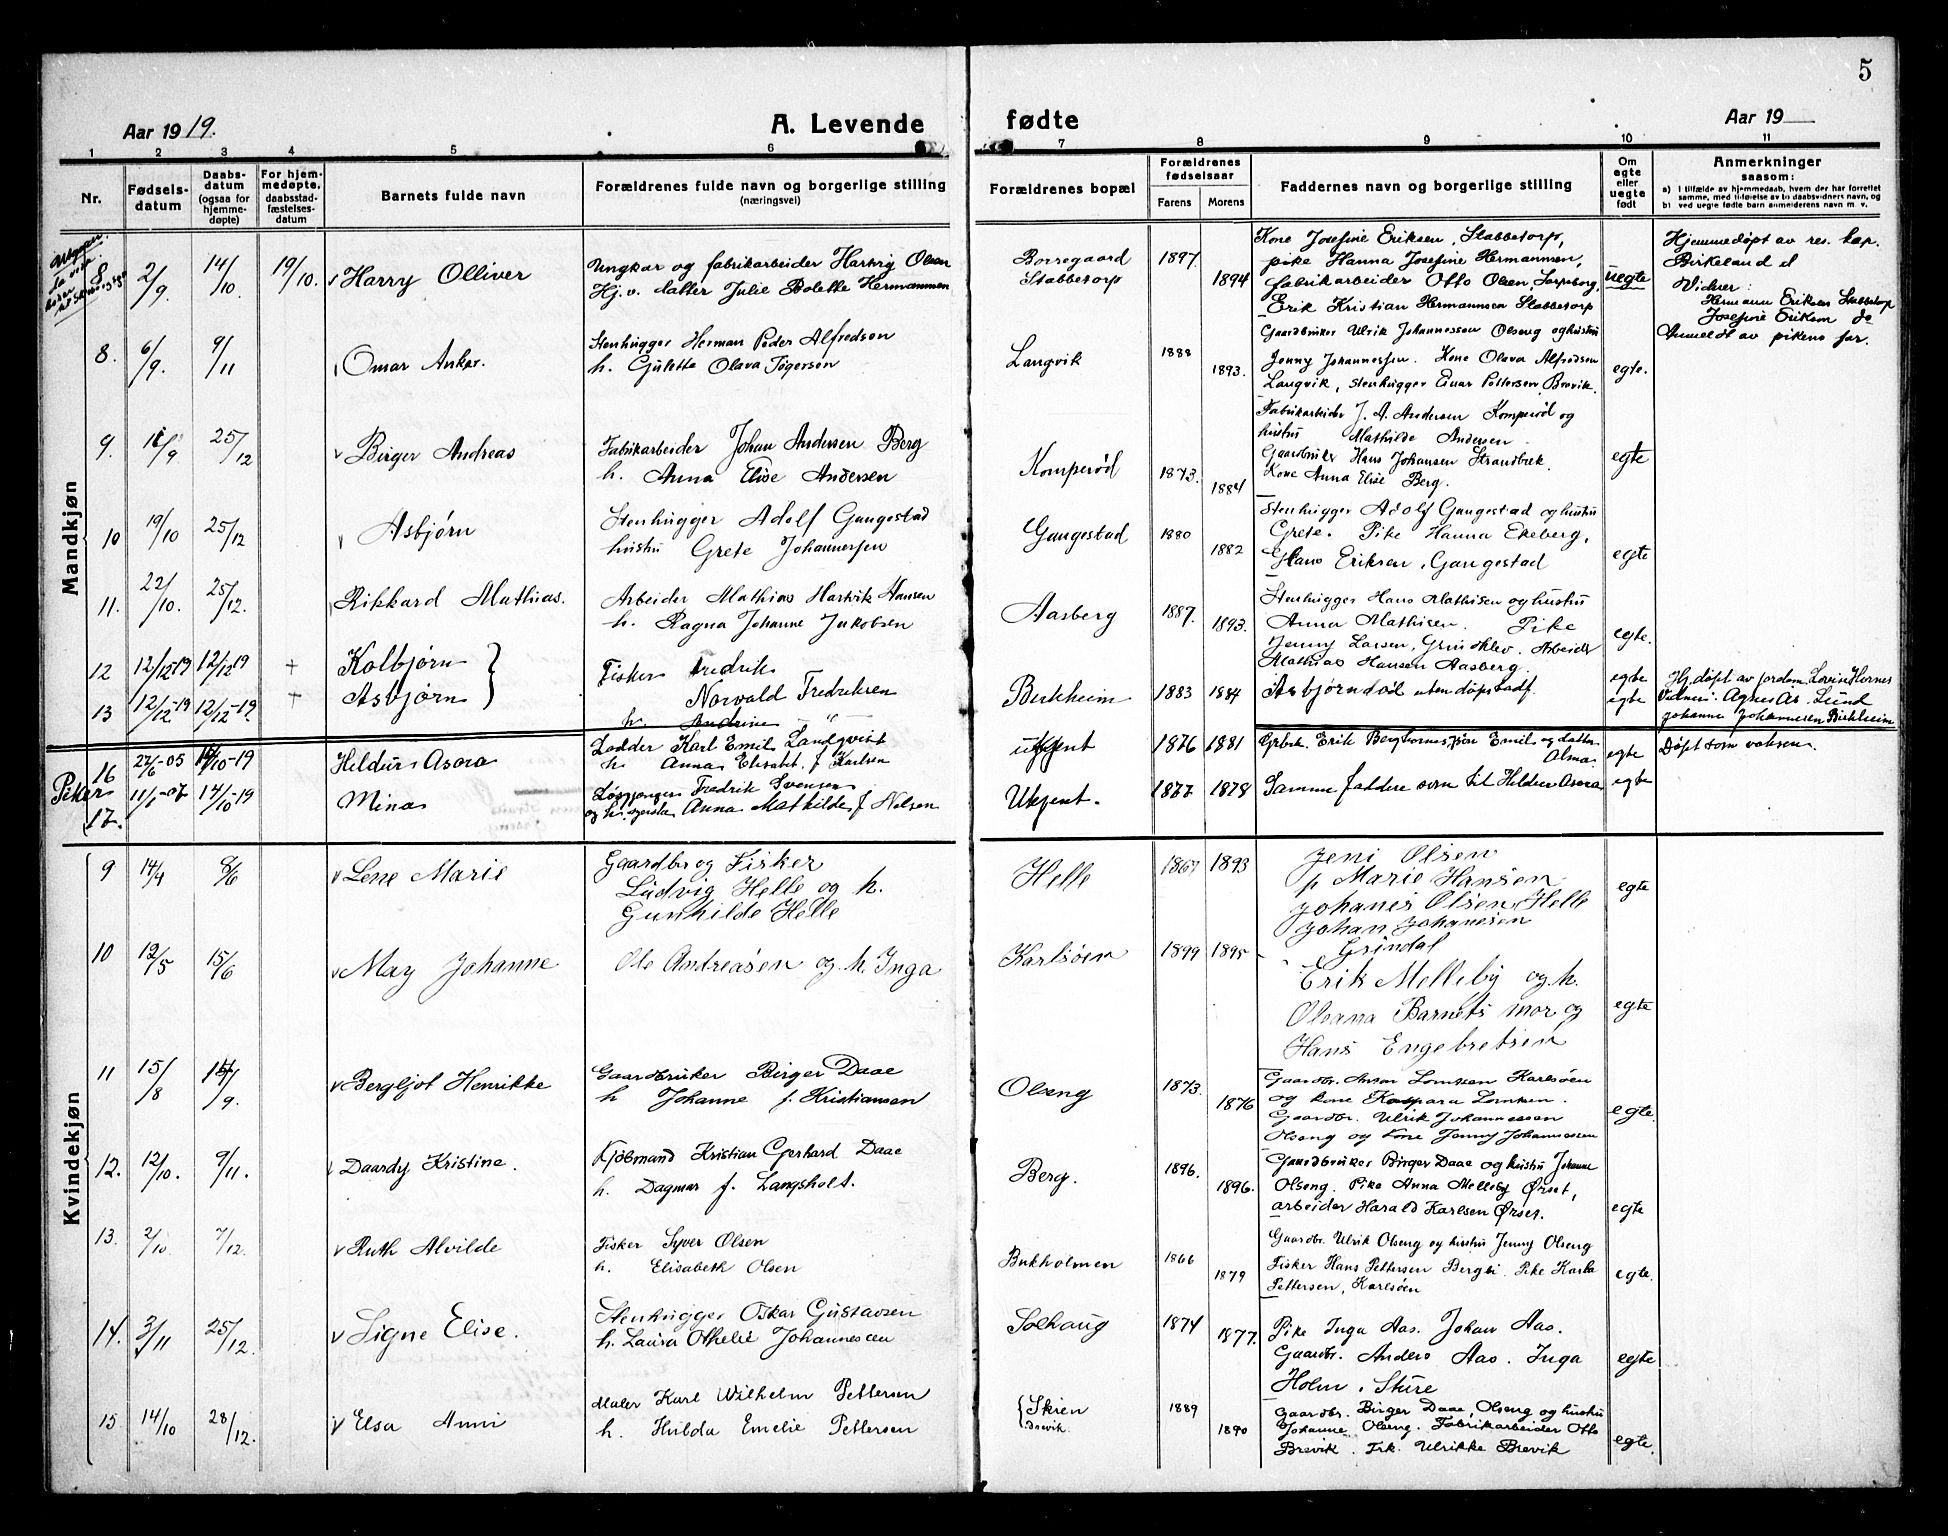 5
Aar 1919.
A. Levende
fødte
Aar 19
1 2 3 4 5 6 7 8 9 10 11
Nr.
Fødsels-
datum
Daabs-
datum
(ogsaa for
hjemme-
døpte)
For hjem-
medøpte,
daabsstad-
fæstelses-
datum
Barnets fulde navn
Forældrenes fulde navn og borgerlige stilling
(næringsvei)
Forældrenes bopæl
Forældrenes
fødselsaar
Farens Morens
Faddernes navn og borgerlige stilling
Om
egte
eller
uegte
født
Anmerkninger
saasom:
a) I tilfælde av hjemmedaab, hvem der har forrettet
samme, med tilføielse av to daabsvidners navn, og
b) ved uegte fødte barn anmelderens navn m. v.
Mandkjøn
8. 2/9 14/10 19/10. Harry Olliver
Ungkar og fabrikarbeider Hartvig Olsen
Hj.v. datter Julie Bolette Hermannsen
Borregaard
Stabbetorp
1897 1894
Kone Josefine Eriksen, Stabbetorp,
pike Hanna Josefine Hermannsen,
fabrikarbeider Otto Olsen Sarpsborg,
Erik Kristian Hermannsen Stabbetorp
uegte
Hjemmedøpt av res. kap.
Birkeland
Vidner:
Hermann Eriksen Stabbetorp
Josefine Eriksen do
Anmeldt av pikens far.
8. 6/9. 9/11 Omar Anker.
Stenhugger Herman Peder Alfredsen
h. Gulette Olava Tøgersen
Langvik
1888 1893.
Gaardbruker Ulrik Johannessen Olseng og hustru
Jenny Johannessen. Kone Olava Alfredsen
Langvik, stenhugger Einar Pettersen Brevik.
egte.
9. 25/12 Birger Andreas
Fabrikarbeider Johan Andersen Berg
h. Anna Elise Andersen
Komperød
1873. 1884
Fabrikarbeider J. A. Andersen Komperød og
hustru Mathilde Andersen
Gaardbruker Hans Johansen Strandbæk.
Kone Anna Elise Berg.
egte
10 19/10 25/12 Asbjørn
Stenhugger Adolf Gangestad
hustru Grete Johannessen
Gangestad
1880 1882
Stenhugger Adolf Gangestad og hustru
Grete. Pike Hanna Ekeberg,
Hans Eriksen, Gangestad
egte
11. 22/10. 25/12. Rikkard Mathias.
Arbeider Mathias Hartvik Hansen
h. Ragna Johanne Jakobsen
Aasberg
1887. 1893.
Stenhugger Hans Mathisen og hustru
Anna Mathisen. Pike
Jenny Larsen, Grindklev. Arbeider
Mathias Hansen Aasberg.
egte.
12 12/12-19 12/12 19 + Kolbjørn
13 12/12-19 12/12-19 + Asbjørn
Fisker Fredrik
Norvald Fredriksen
h. Andrine
Berkheim
1883 1884
Asbjørn død uten døpstadf.
egte
egte
Hj. døpt av jordem. Lovine Hornes
Johanne Johannessen Birkheim
Piker
16 22/6-05 14/10-19 Hildur Asora
Lodder Karl Emil Landqvist
h. Anna Elisabet f Karlsen
ukjent
1876 1881
Erik Emil og datter
Alma
egte
Døpt som voksen.
17. 11/1-07 14/10-19 Mina
Fredrik Svensen
og h. Anna Mathilde f Nilsen
Ukjent.
1877 1878
Samme faddere som til Hildur Asora
egte
Kvindekjøn
9 14/4 8/6 Lene Marie
Gaardbr og Fisker
Ludvig Helle og h.
Gunhilde Helle
Helle
1867 1893
Jeni Olsen
p Marie Hansen
Johanes Olsen Helle
Johan Johanesen
Grindal
egte
10 12/5 15/6 May Johanne
Ole Andreasen og h. Inga
Karlsøen
1899 1895
Erik Melleby og h.
Oleana Barnets mor og
Hans Engebretsen
egte
11 15/8 14/9. Bergljot Henrikke
Gaardbruker Birger Daae
h Johanne f. Kristiansen
Olseng
1873. 1876
Gaardbr. Anton Lomsen Karlsøen
og kone Kaspara Lomsen.
Gaardbr. Ulrik Johannessen
Olseng og kone Jenny Johannessen
egte.
12. 12/10. 9/11. Daardy Kristine.
Kjøbmand Kristian Gerhard Daae
h. Dagmar f. Langsholt.
Berg.
1896. 1896.
Gaardbruker Birger Daae og hustru Johanne
Olseng. Pike Anna Melleby Ørset,
arbeider Harald Karlsen Ørset.
egte
13. 2/10 7/12. Ruth Alvilde
Fisker Syver Olsen
h. Elisabeth Olsen
Bukholmen
1866 1879
Gaardbr. Ulrik Olseng og hustru Jenny Olseng
Fisker Hans Pettersen Bergli. Pike Karla
Pettersen, Karlsøen
egte.
14. 3/11 25/12. Signe Elise.
Stenhugger Oskar Gustavsen
h. Laura Othelie Johannessen
Solhaug
1874 1877.
Pike Inga Aas. Johan Aas.
Gaardbr. Anders Aas. Inga
Holm, Sture
egte
15 14/10 28/12. Elsa Anni
Maler Karl Wilhelm Pettersen
h. Hulda Emelie Pettersen
Skien
Brevik.
1889 1890
Gaardbr. Birger Daae, Olseng og hustru
Johanne Olseng. Fabrikarbeider Otto
Brevik. Frk. Ulrikke Brevik
egte.